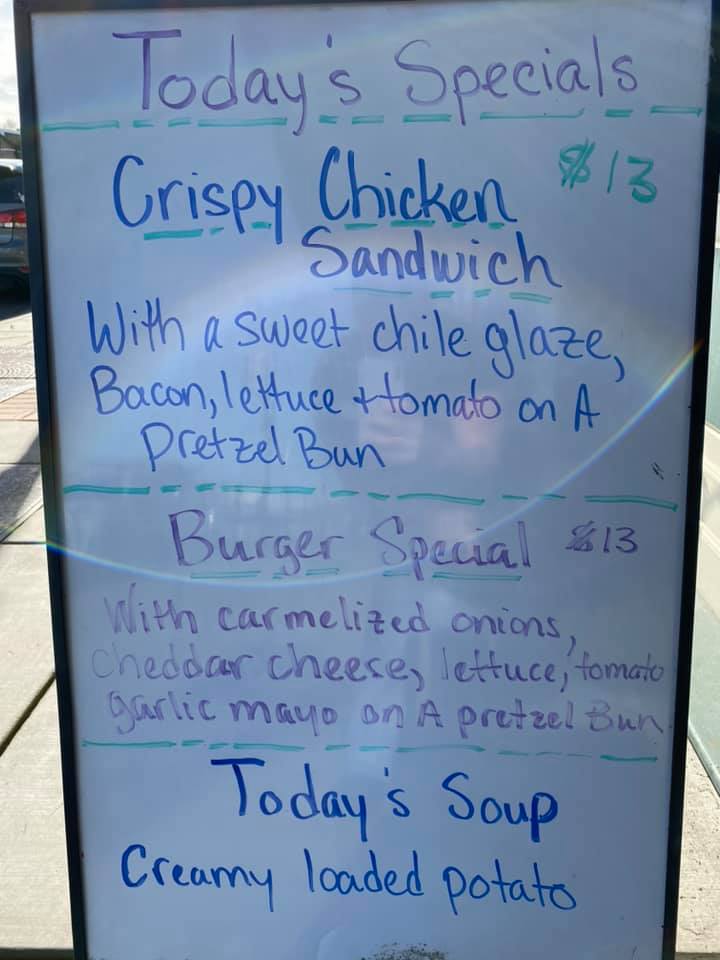 Today's Specials
Crispy Chicken $13
Sandwich
With a sweet chile glaze,
Bacon, lettuce + tomato on A
Pretzel Bun
Burger Special $13
With carmelized onions,
cheddar cheese, lettuce, tomato
garlic mayo on A pretzel Bun
Today's Soup
Creamy loaded potato